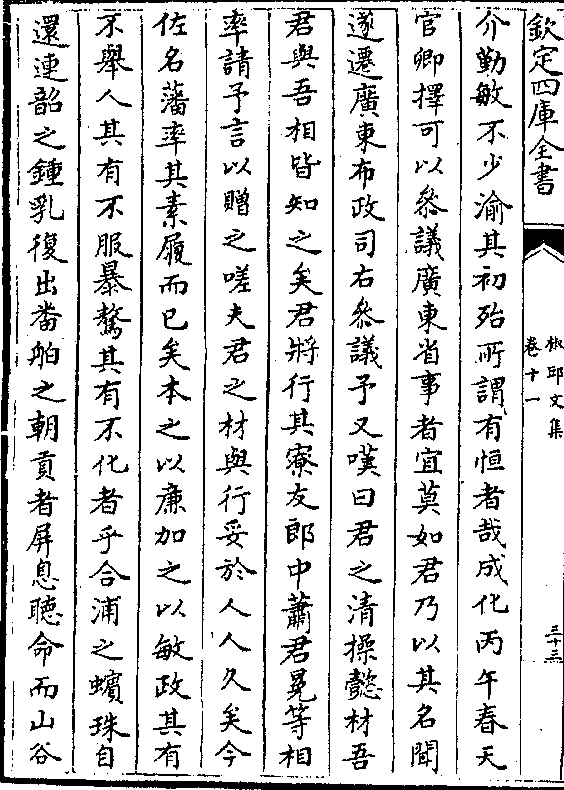 欽定四庫全書
椒邱文集
卷十一
三十三
介勤敏不少渝其初殆所謂有恒者哉成化丙午春天
官卿擇可以叅議廣東省事者宜莫如君乃以其名聞
遂遷廣東布政司右叅議予又嘆曰君之清操懿材吾
君與吾相皆知之矣君將行其寮友郎中蕭君冕等相
率請予言以贈之嗟夫君之材與行妥於人人久矣今
佐名藩率其素履而已矣本之以廉加之以敏政其有
不舉人其有不服暴驁其有不化者乎合浦之蠙珠自
還連韶之鍾乳復出畨舶之朝貢者屏息聽命而山谷